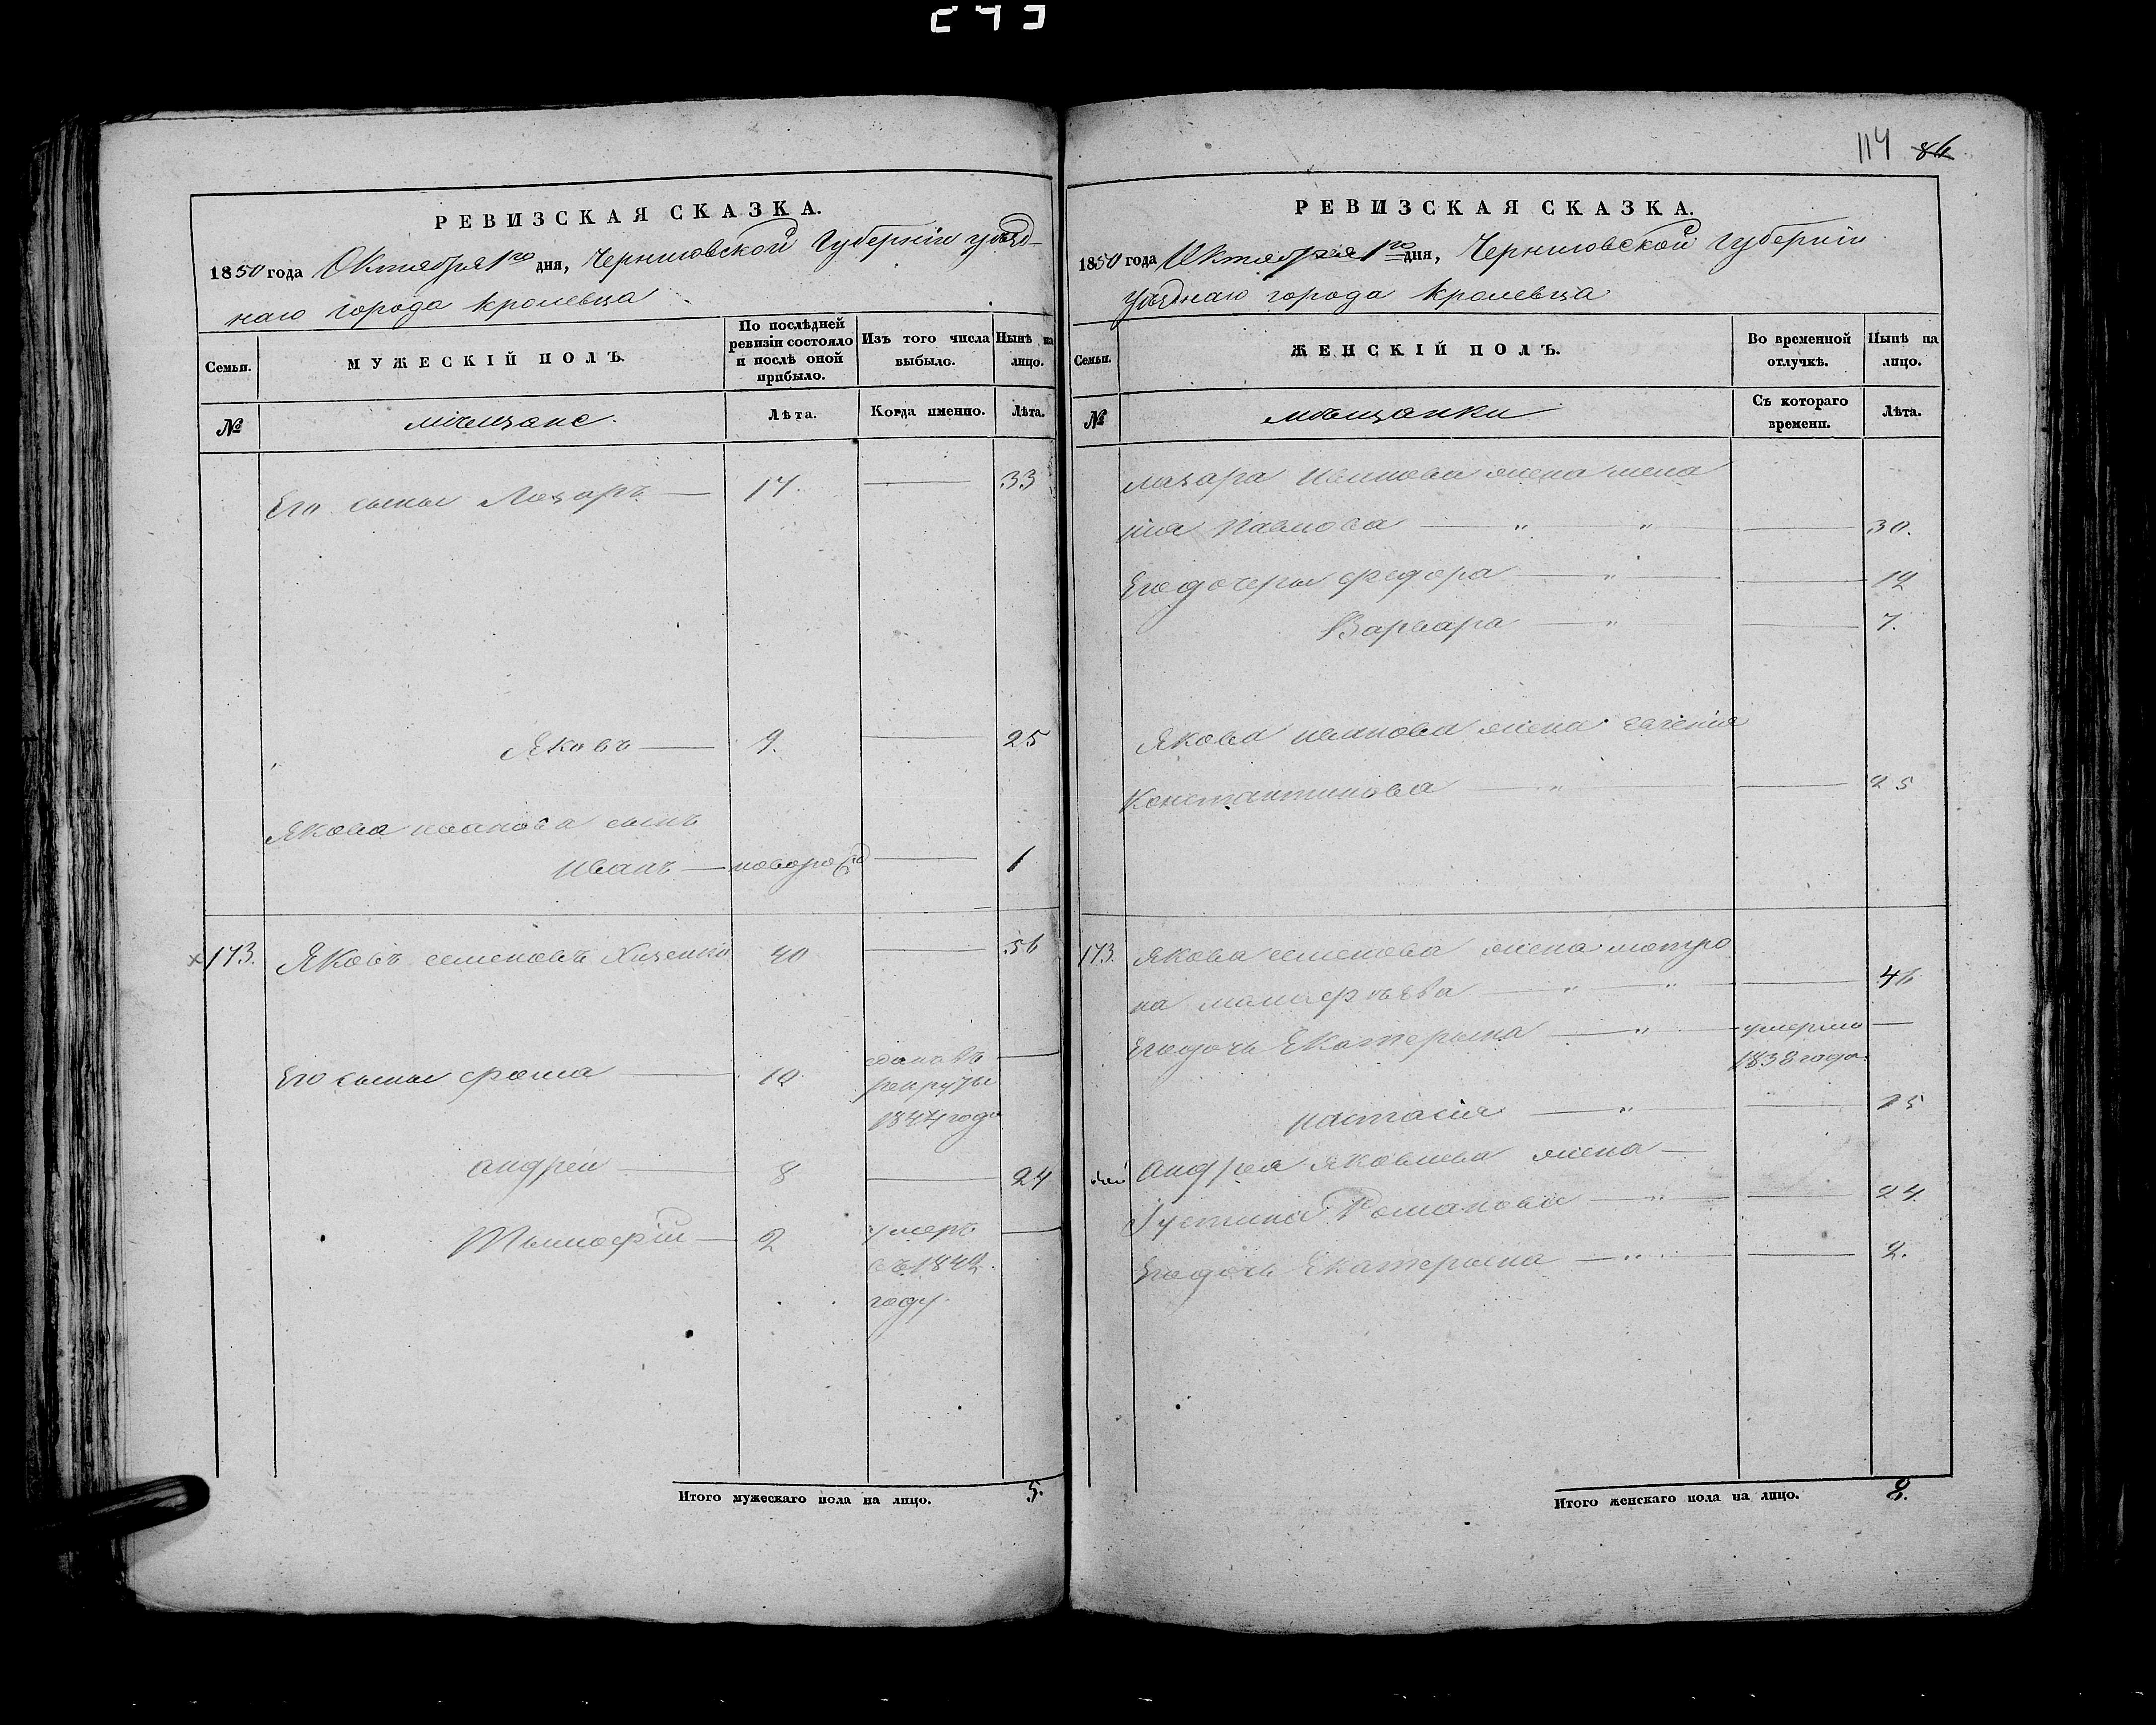 243
РЕВИЗСКАЯ СКАЗКА.
1850 года Октября 1го дня, Черниговской Губернiи уѣзд-
наго города Кролевца
Семьи. МУЖЕСКIЙ ПОЛЪ. По послѣдней ревизiи состояло и послѣ оной прибыло. Изъ того числа выбыло. Нынѣ на лицо.
№ мѣщане. Лѣта. Когда именно. Лѣта.
Его сыны Лазаръ — 17. — 33
Яковъ — 9. — 25
Якова иванова сынъ
Иванъ — новорожд — 1
173. Яковъ семеновъ 40 — 56
Его сыны фома — 10 здан въ рекруты 1844 года —
андреи — 8 — 24
Тымофiй — 2 умеръ въ 1842 году. —
Итого мужескаго пола на лицо. 5.
114 86
РЕВИЗСКАЯ СКАЗКА.
1850 года Октября 1го дня, Черниговской Губернiи
уѣзднаго города Кролевца
Семьи. ЖЕНСКIЙ ПОЛЪ. Во временной отлучкѣ. Нынѣ на лицо.
№ мѣщанки Съ котораго времени. Лѣта.
лазара Иванова жена мела
нiя Павлова — " " — 30.
Его дочеры федора — " — 12
Варвара — " — 7.
Якова иванова жена
Константинова — " — 25
173. Якова семенова жена мотро
на — " — " — 46
Его дочь Екатерына — " — умерла 1838 года —
настасiя — " — 15
Андрея яковлева жена —
Iустина Романова — " — 24.
Его дочь Екатерына — " — 2.
Итого женскаго пола на лицо. 8.